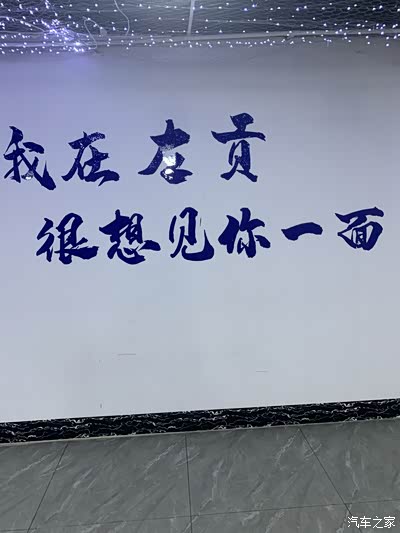 我在左贡
很想见你一面
汽车之家